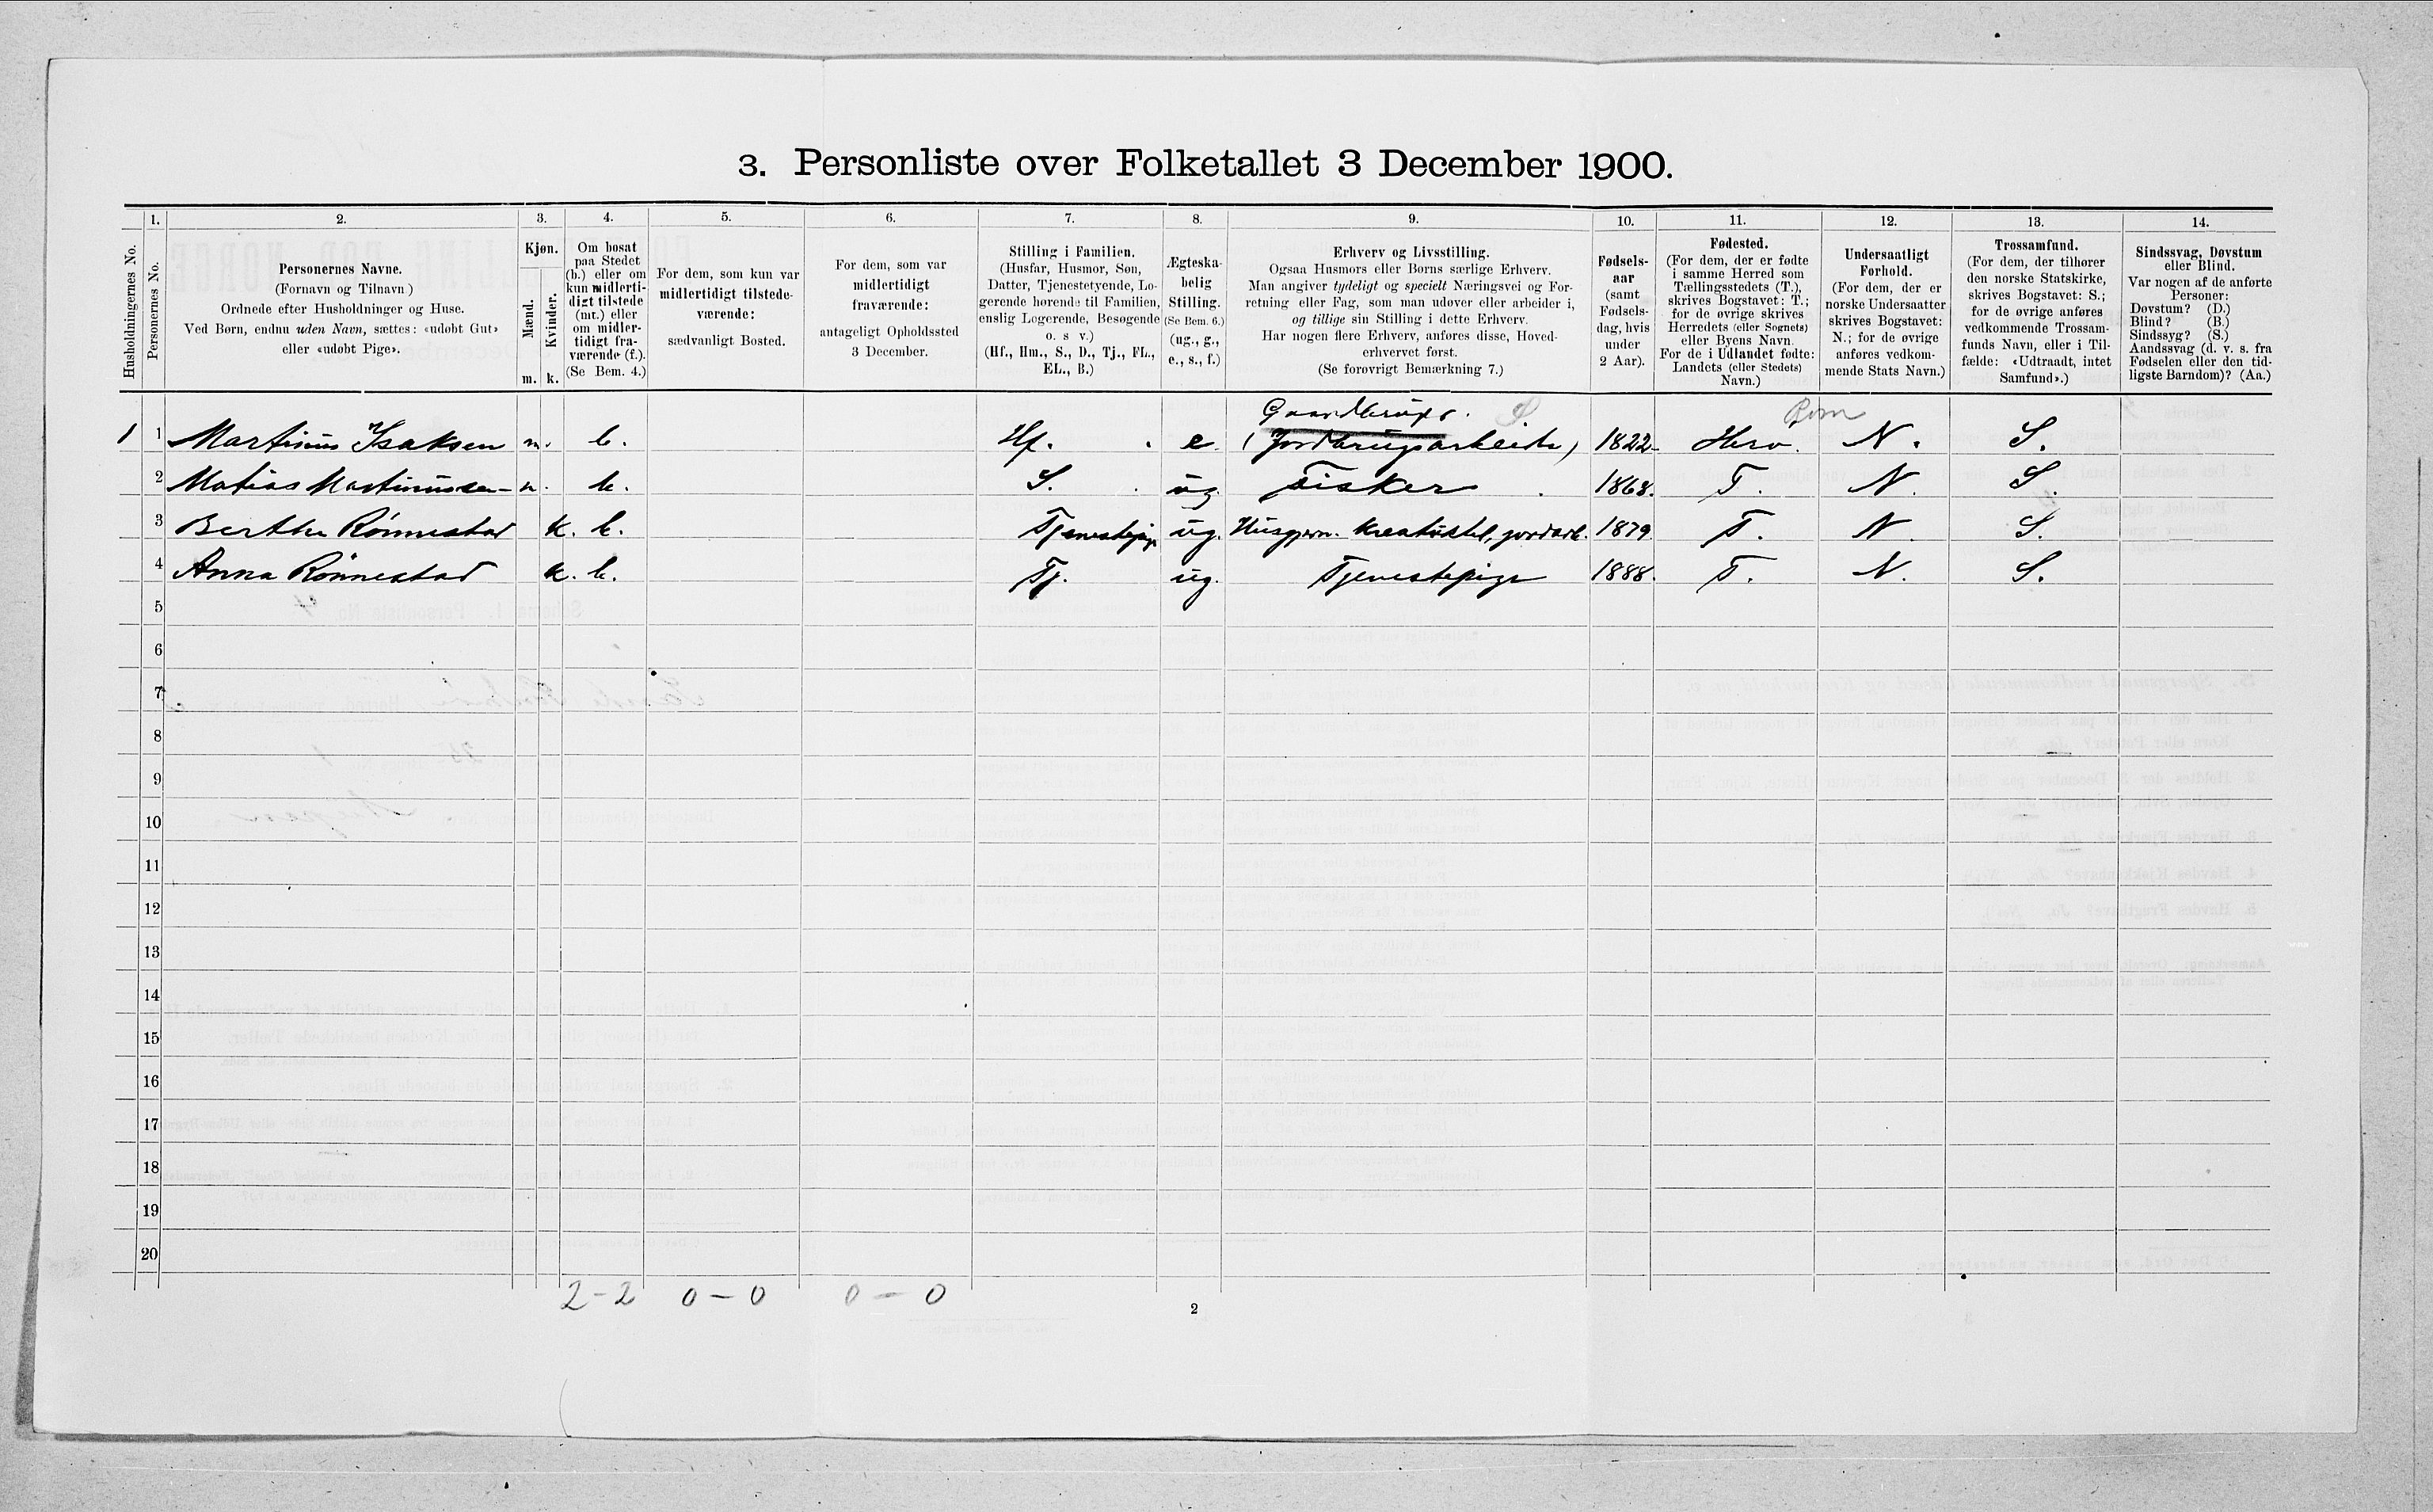 3. Personliste over Folketallet 3 December 1900.
1. 2. 3. 4. 5. 6. 7. 8. 9. 10. 11. 12. 13. 14.
Husholdningernes No.
Personernes No.
Personernes Navne.
(Fornavn og Tilnavn)
Ordnede efter Husholdninger og Huse.
Ved Børn, endnu uden Navn, sættes: «udøbt Gut»
eller «udøbt Pige».
Kjøn.
Mænd.
Kvinder.
m. k.
Om bosat
paa Stedet
(b.) eller om
kun midlerti-
digt tilstede
(mt.) eller
om midler-
tidigt fra-
værende (f.).
(Se Bem. 4.)
For dem, som kun var
midlertidigt tilstede-
værende:
sædvanligt Bosted.
For dem, som var
midlertidigt
fraværende:
antageligt Opholdssted
3 December.
Stilling i Familien.
(Husfar, Husmor, Søn,
Datter, Tjenestetyende, Lo-
gerende hørende til Familien,
enslig Logerende, Besøgende
o. s v.)
(Hf., Hm., S., D., Tj., FL.,
EL., B.)
Ægteska-
belig
Stilling.
(Se Bem. 6.)
(ug., g.,
e., s., f.)
Erhverv og Livsstilling.
Ogsaa Husmors eller Børns særlige Erhverv.
Man angiver tydeligt og specielt Næringsvei og For-
retning eller Fag, som man udøver eller arbeider i,
og tillige sin Stilling i dette Erhverv.
Har nogen flere Erhverv, anføres disse, Hoved-
erhvervet først.
(Se forøvrigt Bemærkning 7.)
Fødsels-
aar
(samt
Fødsels-
dag, hvis
under
2 Aar).
Fødested.
(For dem, der er fødte
i samme Herred som
Tællingsstedets (T.),
skrives Bogstavet: T.;
for de øvrige skrives
Herredets (eller Sognets)
eller Byens Navn.
For de i Udlandet fødte:
Landets (eller Stedets)
Navn.)
Undersaatligt
Forhold.
(For dem, der er
norske Undersaatter
skrives Bogstavet:
N.; for de øvrige
anføres vedkom-
mende Stats Navn.)
Trossamfund.
(For dem, der tilhører
den norske Statskirke,
skrives Bogstavet: S.;
for de øvrige anføres
vedkommende Trossam-
funds Navn, eller i Til-
fælde: «Udtraadt, intet
Samfund».)
Sindssvag, Døvstum
eller Blind.
Var nogen af de anførte
Personer:
Døvstum? (D.)
Blind? (B.)
Sindssyg? (S.)
Aandssvag (d. v. s. fra
Fødselen eller den tid-
ligste Barndom)? (Aa.)
Gaardbruger. S
1 1 Martinus Isaksen m. b. Hf. e. (Jordbrugsarbeide) 1822. Herø. N. S.
2 Matias Martinussen m. b. S. ug. Fisker 1868. T. N. S.
3 Berthe Rönnestad k. b. Tjenestepige ug. Husgjern. Kreaturstel, jordarb. 1879 T. N. S.
4 Anna Rönnestad k. b. Tj. ug. Tjenestepige 1888. T. N. S.
5
6
7
8
9
10
11
12
13
14
15
16
17
18
19
20
2-2 0-0 0-0
2